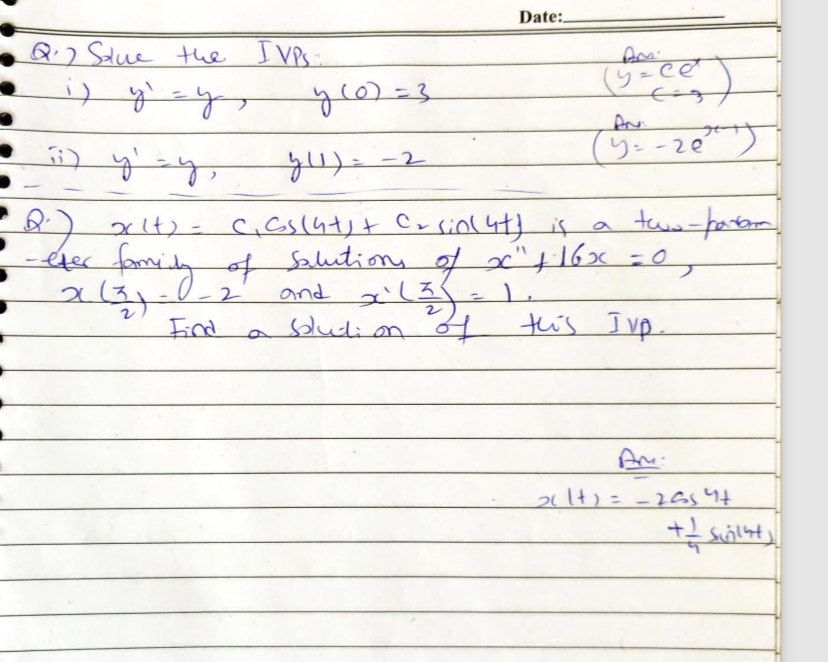 Date:
Q.) Solve the IVPs:
i) y' = y, y(0) = 3
Ans:
(y = ce^x
c = 3)
ii) y' = y, y(1) = -2
Ans:
(y = -2e^{x-1})
Q.) x(t) = C₁ Cos(4t) + C₂ sin(4t) is a two-param
-eter family of solutions of x'' + 16x = 0,
x(π/2) = -2 and x'(π/2) = 1.
Find a solution of this IVP.
Ans:
x(t) = -2 Cos 4t
+ 1/4 sin(4t)